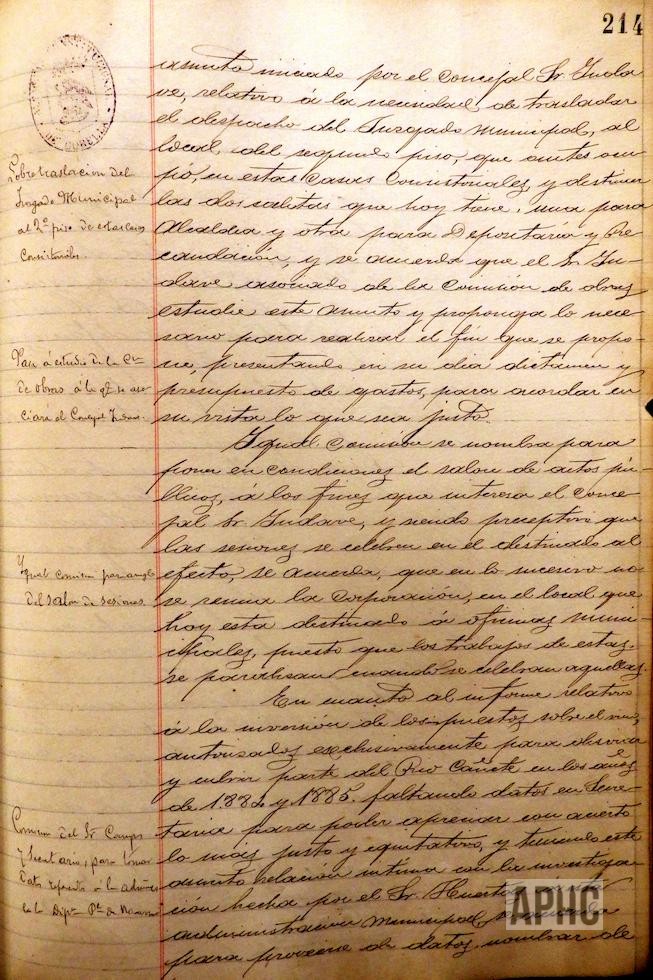 214
asunto iniciado por el Concejal Sr. Inda
ve, relativo á la necesidad, de trasladar
el despacho del Juzgado Municipal, al
local del segundo piso, que antes ocu
pó, en estas Casas Consistoriales y destinar
las dos salitas que hoy tiene, una para
Alcaldia y otra para Depositaria y Re
caudacion, y se acuerda que el Sr. In
dave asociado de la Comisión de obras,
estudie este asunto y proponga lo nece
sario para realizar el fin que se propo
ne, presentando en su dia dictamen y
presupuesto de gastos, para acordar en
su vista lo que sea justo.
Igual Comision se nombra para
poner en condiciones el salon de actos pú
blicos, á los fines que interesa el Conce
jal Sr. Indave, y siendo preceptivo que
las sesiones se celebren en el destinado al
efecto, se acuerda, que en lo sucesivo no
se reuna la Corporación, en el local que
hoy esta destinado á oficinas muni-
cipales, puesto que los trabajos de estas,
se paralisan cuando se celebran aquellas.
En cuanto al informe relativo
á la inversión de los puestos sobre el vino,
autorizados exclusivamente para
y cubrir parte del Rio Cañete en los años
de 1884 y 1885, faltando datos en Secre-
taria para poder apreciar con acierto
lo más justo y equitativo, y teniendo este
asunto relacion intima con la investiga
ción hecha por el Sr. Huerta
administración Municipal, se acuerda
para proveerse de datos, nombrar de
DE CORELLA
Sobre traslacion del
Juzgado Municipal
al 2º piso de estas Casas
Consistoriales.
Pase á estudio de la Cn
de obras á la qe se aso
ciara el Concejal Indave.
Igual comision para arreglo
del salon de sesiones.
Comision del Sr Campos
y Secretario, para tomar
datos referente á la
en la Dipn Pl de Navarra
APHC